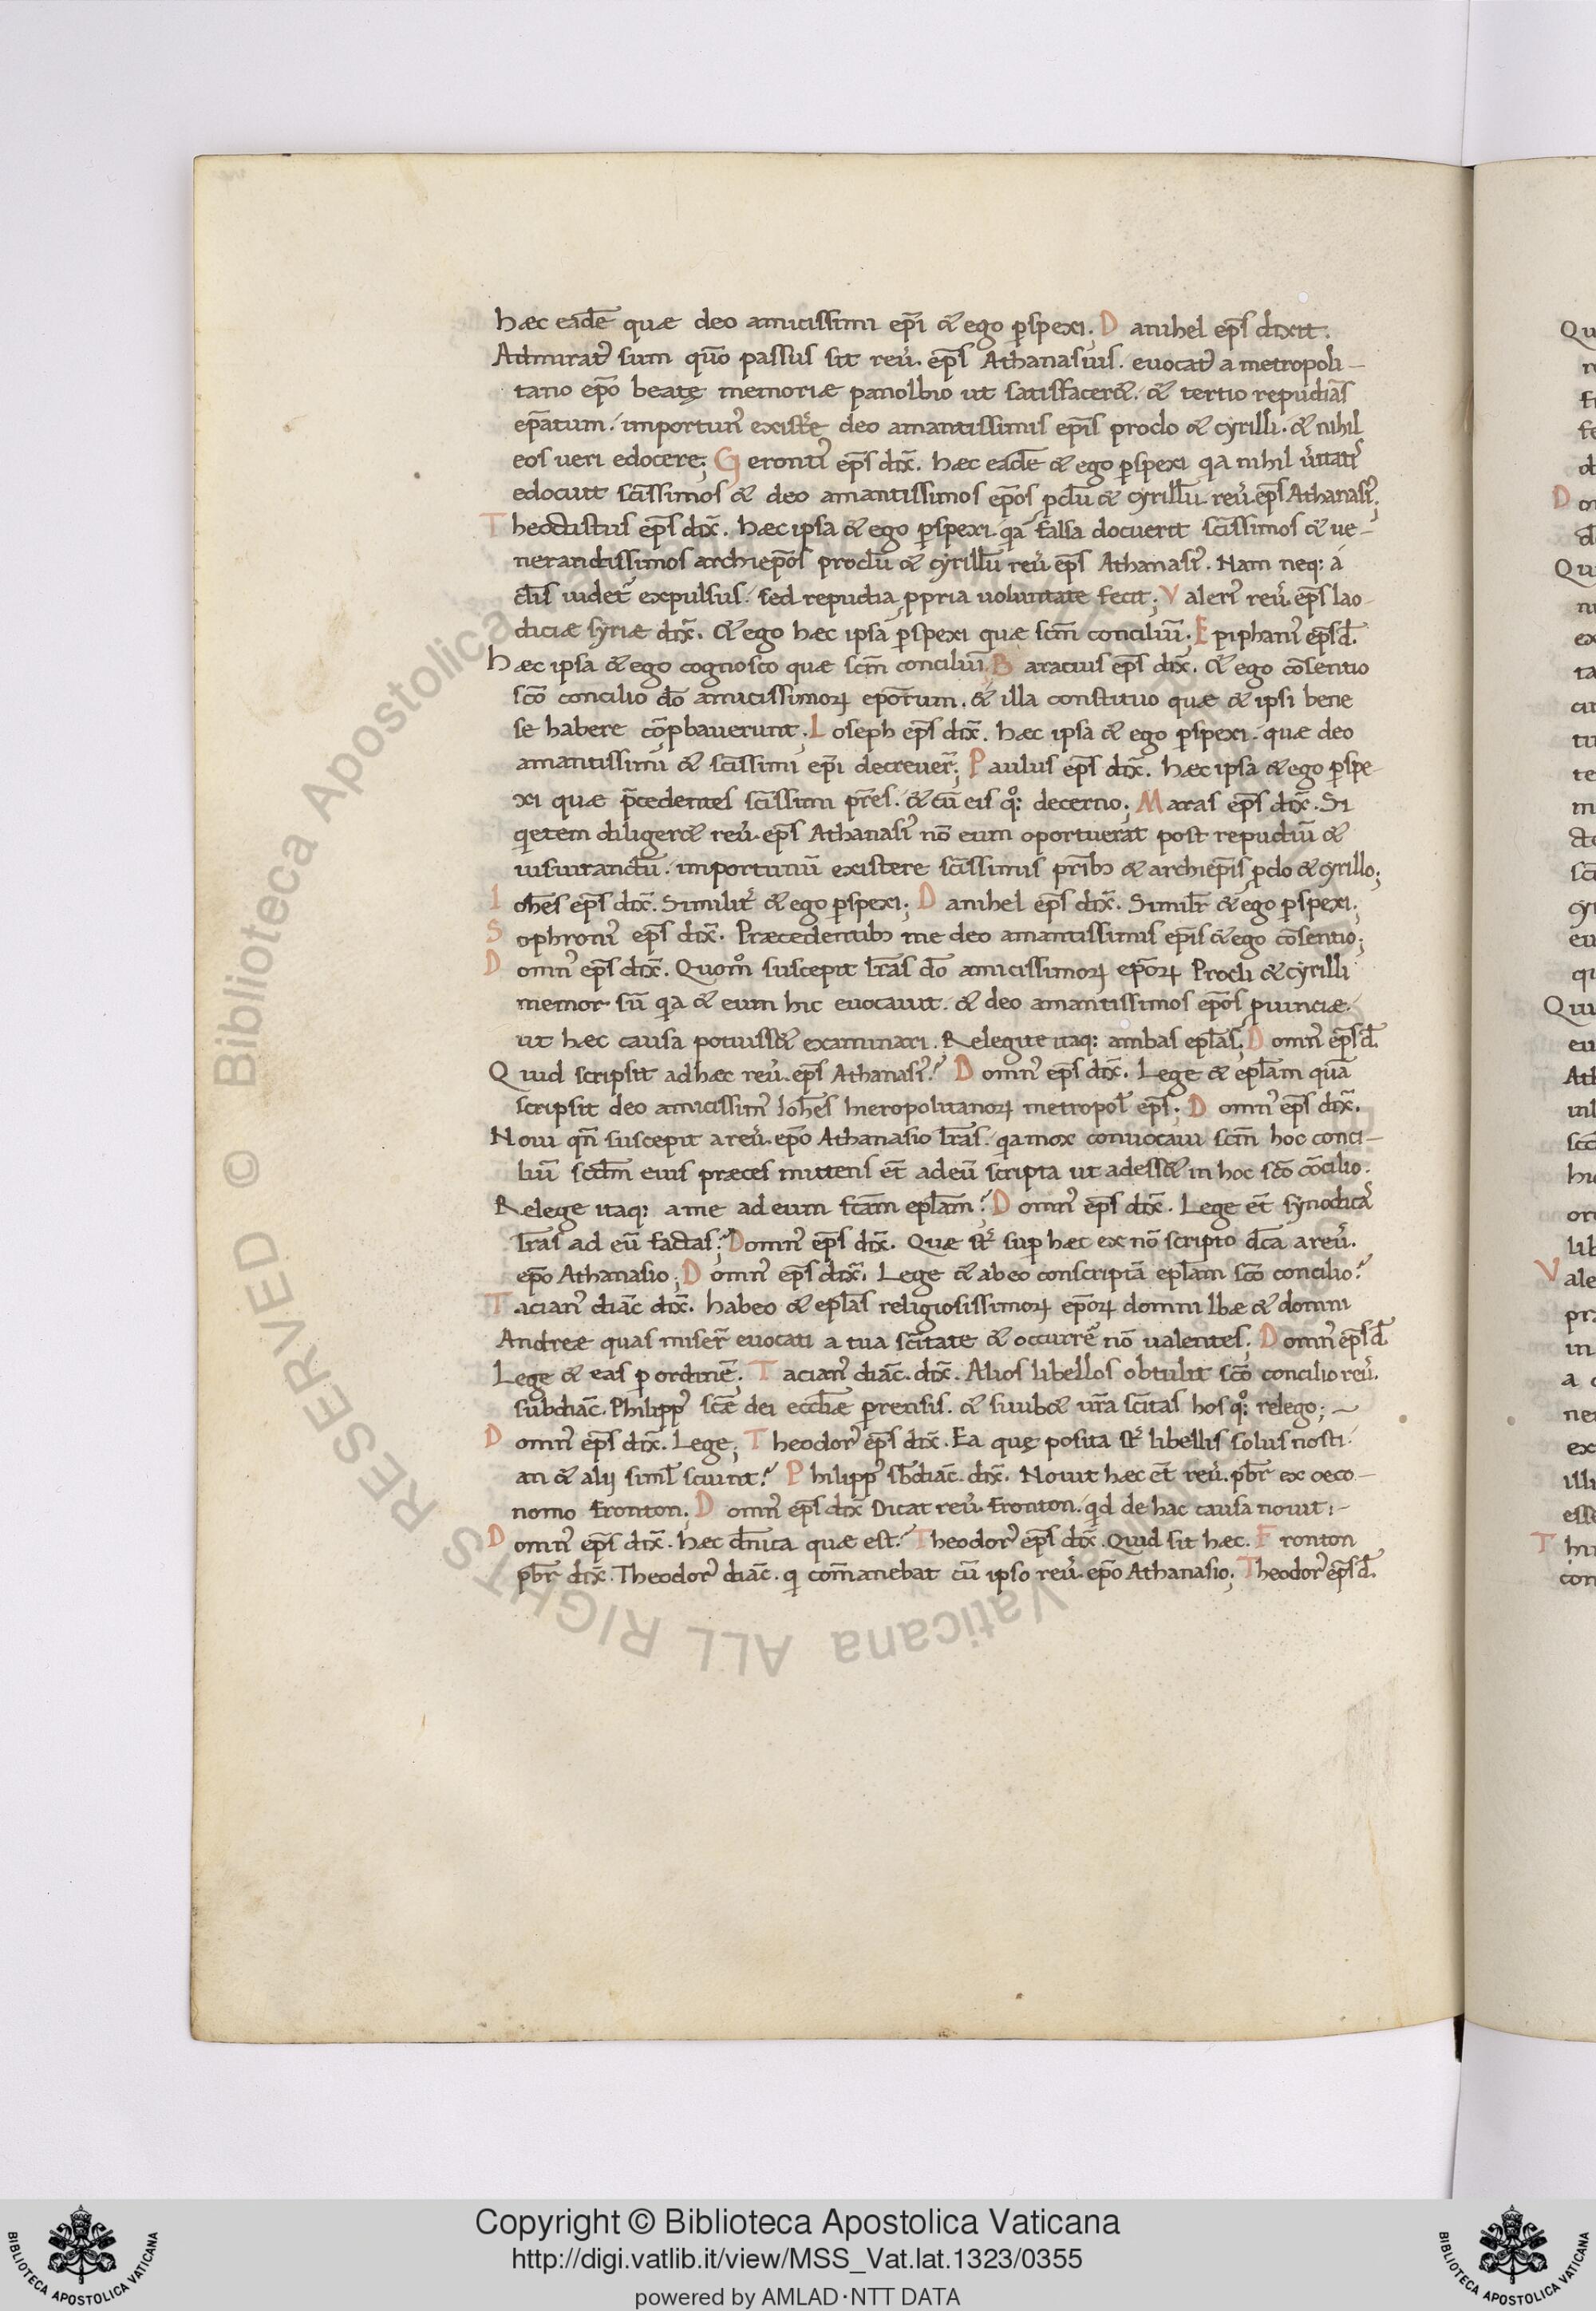 hæc eadē quæ deo amicissimi ep̄i & ego ꝑspexi; Danihel ep̄s dixit.
Admirat᾽ sum quō passus sit reu᾽. ep̄s Athanasius. euocat᾽ a metropoli-
tano ep̄o beatę memoriæ panolbio ut satisfacer&. & tertio repudiās
ep̄atum. importun᾽ existe᾽ deo amantissimis ep̄is proclo & cyrilli. & nihil
eos ueri edocere; Geronti᾽ ep̄s dix̄. hæc eadē & ego ꝑspexi qa nihil ueritati᾽
edocuit sc̄issimos & deo amantissimos ep̄os ꝓclū & cyrillū. reu᾽. ep̄s Athanasi᾽;
Theodistus ep̄s dix̄. hæc ipsa & ego ꝑspexi. qa falsa docuerit sc̄issimos & ue-
nerandissimos archiep̄os proclū & cyrillū reu᾽ ep̄s Athanasi᾽. Nam neq: a
dis uidet᾽ expulsus. sed repudia ꝓpria uoluntate fecit; Valeri᾽ reu᾽. ep̄s lao-
diciæ syriæ dix̄. & ego hæc ipsa ꝑspexi quæ sc̄m conciliū. Epiphani᾽ ep̄s d̄.
hæc ipsa & ego cognosco quæ sc̄m conciliū. Baracius ep̄s dix̄. & ego cōsentio
sc̄o concilio dō amicissimoꝝ ep̄orum. & illa constituo quæ & ipsi bene
se habere cōꝓbauerunt; Ioseph ep̄s dix̄. hæc ipsa & ego ꝑspexi. quæ deo
amantissimi & sc̄issimi ep̄i decreuer̄; Paulus ep̄s dix̄. hæc ipsa & ego ꝑspe-
xi quæ p̄cedentes sc̄issimi pr̄es. & cū eis qͦ: decerno; Maras ep̄s dix̄. Si
qietem diliger& reu᾽. ep̄s Athanasi᾽ nō eum oportuerat post repudiū &
iusiurandū. importunū existere sc̄issimis pr̄ibꝫ & archiep̄is ꝓclo & cyrillo;
Ioh̄es ep̄s dix̄. Similit᾽ & ego ꝑspexi; Danihel ep̄s dix̄. Similr̄ & ego ꝑspexi;
Sophroni᾽ ep̄s dix̄. Præcedentibꝫ me deo amantissimis ep̄is & ego cōsentio;
Domn᾽ ep̄s dix̄. Quom̊ suscepit lr̄as dō amicissimoꝝ ep̄oꝝ Procli & cyrilli
memor sū qa & eum hic euocauit. & deo amantissimos ep̄os ꝓuinciæ.
ut hæc causa potuiss& examinari. Relegite itaq: ambas ep̄las; Domn᾽ ep̄s d̄.
Quid scripsit ad hæc reu᾽. ep̄s Athanasi᾽? Domn᾽ ep̄s dix̄. Lege & ep̄lam quā
scripsit deo amicissim᾽ Ioh̄es hieropolitanoꝝ metropol̄ ep̄s; Domn᾽ ep̄s dix̄.
Noui qn̄ suscepit a reu᾽. ep̄o Athanasio lr̄as. qa mox conuocaui sc̄m hoc conci-
liū sc̄dm eius præces mittens et̄ ad eū scripta ut adess& in hoc sc̄o cōcilio.
Relege itaq: a me ad eum fc̄am ep̄lam? Domn᾽ ep̄s dix̄. Lege et̄ synodica᾽
lr̄as ad eū factas; Domn᾽ ep̄s dix̄. Quæ st᾽ suꝑ hæc ex nō scripto dc̄a a reu᾽.
ep̄o Athanasio; Domn᾽ ep̄s dix̄. Lege & ab eo conscriptā ep̄lam sc̄o concilio?
Tacian᾽ diāc dix̄. habeo & ep̄las religiosissimoꝝ ep̄oꝝ domni Ibæ & domni
Andreæ quas miser̄ euocati a tua sc̄itate & occurre᾽ nō ualentes. Domn᾽ ep̄s d̄.
Lege & eas ꝑ ordinē; Tacian᾽ diāc. dix̄. Alios libellos obtulit sc̄o concilio reu᾽.
subdiāc. Philipp᾽ sc̄æ dei eccl̄iæ ꝑrensis. & si iub& ur̄a sc̄itas hos qͦ: relego;
Domn᾽ ep̄s dix̄. Lege; Theodor᾽ ep̄s dix̄. Ea quę posita st᾽ libellis solus nosti.
an & alij siml̄ sciunt? Philipp᾽ sb̄diāc. dix̄. Nouit hæc et̄ reu᾽. pb̄r ex oeco-
nomo Fronton; Domn᾽ ep̄s dix̄ Dicat reu᾽. Fronton. qd de hac causa nouit;-
Domn᾽ ep̄s dix̄. hæc dn̄ica quæ est? Theodor᾽ ep̄s dix̄. Quid sit hæc. Fronton
pb̄r dix̄. Theodor᾽ diāc. qi com̄anebat cū ipso reu᾽. ep̄o Athanasio; Theodor᾽ ep̄s d̄.
© Biblioteca Apostolica Vaticana ALL RIGHTS RESERVED
Copyright © Biblioteca Apostolica Vaticana
http://digi.vatlib.it/view/MSS_Vat.lat.1323/0355
powered by AMLAD·NTT DATA
BIBLIOTECA APOSTOLICA VATICANA
BIBLIOTECA APOSTOLICA VATICANA